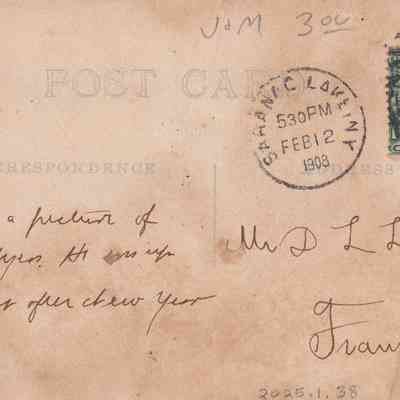 J & M 3.00
POST CARD
SARANAC LAKE, N.Y.
530 PM
FEB 12
1908
RESPONDENCE
ADDRESS
a picture of
He was up
after New Year
Mr D L L
Fran
2025.1.38